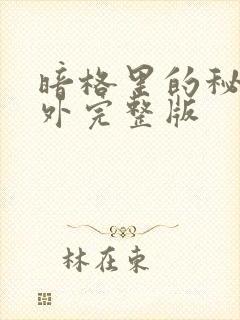 暗格里的秘
外完整版
林在東